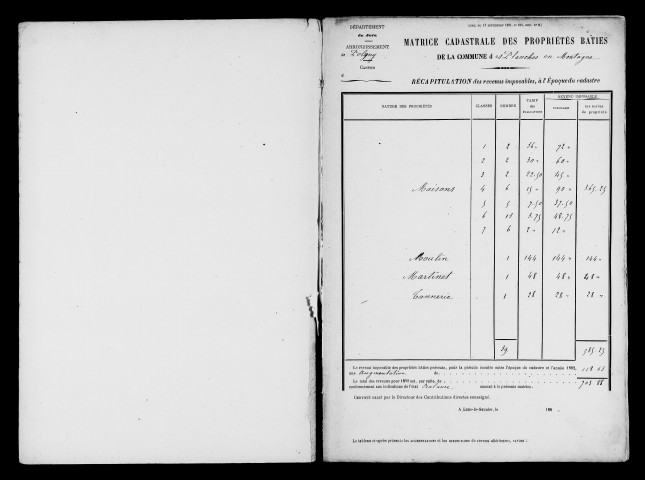 DÉPARTEMENT
du Jura
ARRONDISSEMENT
de Poligny
CANTON
d
MATRICE CADASTRALE DES PROPRIÉTÉS BÂTIES
DE LA COMMUNE d es Planches en Montagne
RÉCAPITULATION des revenus imposables, à l'Époque du cadastre
NATURE DES PROPRIÉTÉS CLASSES NOMBRE TARIF des ÉVALUATIONS REVENU IMPOSABLE
PAR CLASSE PAR NATURE de propriété
1 2 36 " 72 "
2 2 30 " 60 "
3 2 22.50 45 "
Maisons 4 6 15 " 90 " 365.25
5 5 7.50 37.50
6 13 3.75 48.75
7 6 2 " 12 "
Moulin 1 144 144 " 144 "
Martinet 1 48 48 " 48 "
Tannerie 1 28 28 " 28 "
39 585.25
Le revenu imposable des propriétés bâties présente, pour la période écoulée entre l'époque du cadastre et l'année 1882,
une augmentation de
Le total des revenus pour 1882 est, par suite, de 703 88
conformément aux indications de l'état annexé à la présente matrice.
Certifié exact par le Directeur des Contributions directes soussigné.
A Lons-le-Saunier, le 188
Le tableau ci-après présente les augmentations et les diminutions de revenu ultérieures, savoir :